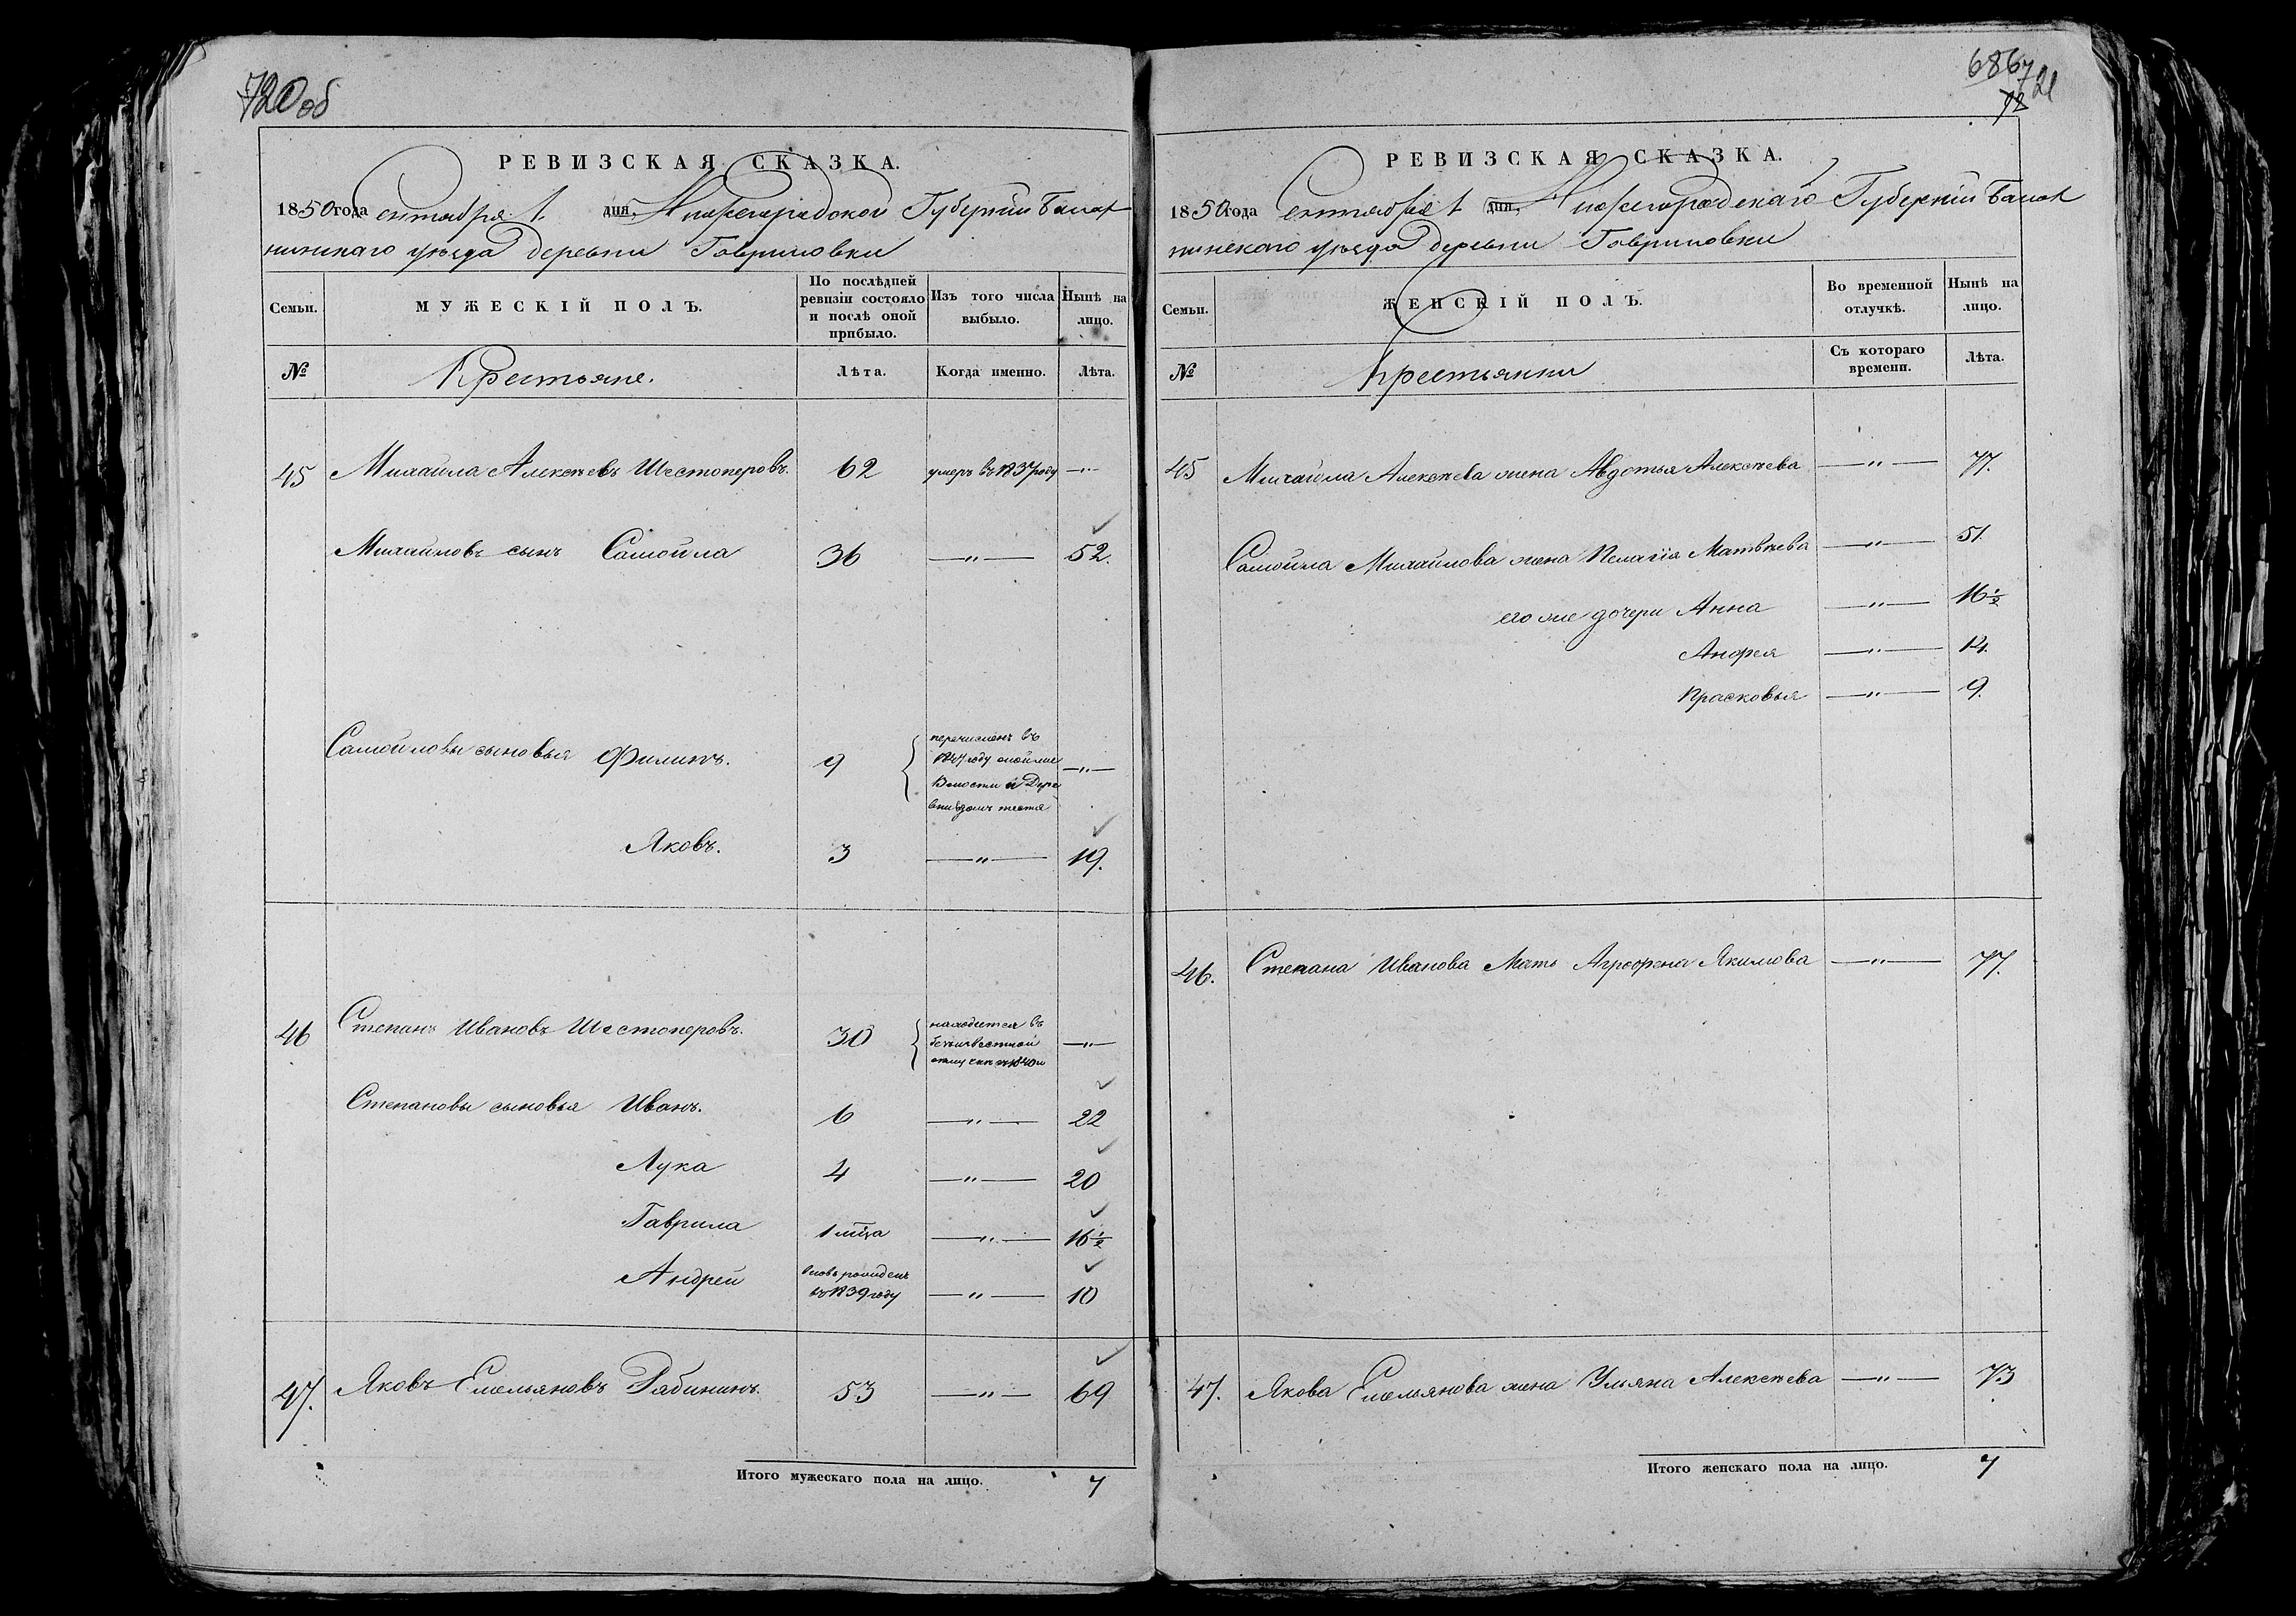 720 об
РЕВИЗСКАЯ СКАЗКА.
1850 года сентября 1. дня, Нижегородской Губернии Балах
нинскаго уѣзда деревни Гавриловки
Семьи.
МУЖЕСКІЙ ПОЛЪ.
По послѣдней ревизіи состояло и послѣ оной прибыло.
Изъ того числа выбыло.
Нынѣ на лицо.
№
Крестьяне.
Лѣта.
Когда именно.
Лѣта.
45 Михайла Алексѣевъ Шестоперовъ. 62 умеръ въ 1837 году —„—
Михайловъ сынъ Самойла 36 —„— 52.
Самойловы сыновья Филипъ. 9 перечисленъ въ
году оной же
Волости и Дере
вни домъ тестя —„—
Яковъ. 3 —„— 19.
46 Степанъ Ивановъ Шестоперовъ. 30 находится въ
безъизвестной
1840 —„—
Степановы сыновья Иванъ. 6 —„— 22
Лука 4 —„— 20
Гаврила 1 мца —„— 16½
Андрей вновь рожденъ
въ 1839 году —„— 10
47. Яковъ Емельяновъ Рябининъ. 53 —„— 69
Итого мужескаго пола на лицо. 7
686
721
РЕВИЗСКАЯ СКАЗКА.
1850 года сентября 1 дня, Нижегородскаго Губерніи Балах
нинскаго уѣзда деревни Гавриловки
Семьи.
ЖЕНСКІЙ ПОЛЪ.
Во временной отлучкѣ.
Нынѣ на лицо.
№
Крестьянки
Съ котораго времени.
Лѣта.
45 Михайла Алексѣева жена Авдотья Алексѣева —„— 77.
Самойла Михайлова жена Пелагія Матвѣева —„— 51.
его же дочери Анна —„— 16½
Анфея —„— 14.
Прасковья —„— 9.
46. Степана Иванова Мать Аграфена Якимова —„— 77.
47. Якова Емельянова жена Ульяна Алексѣева —„— 73
Итого женскаго пола на лицо. 7